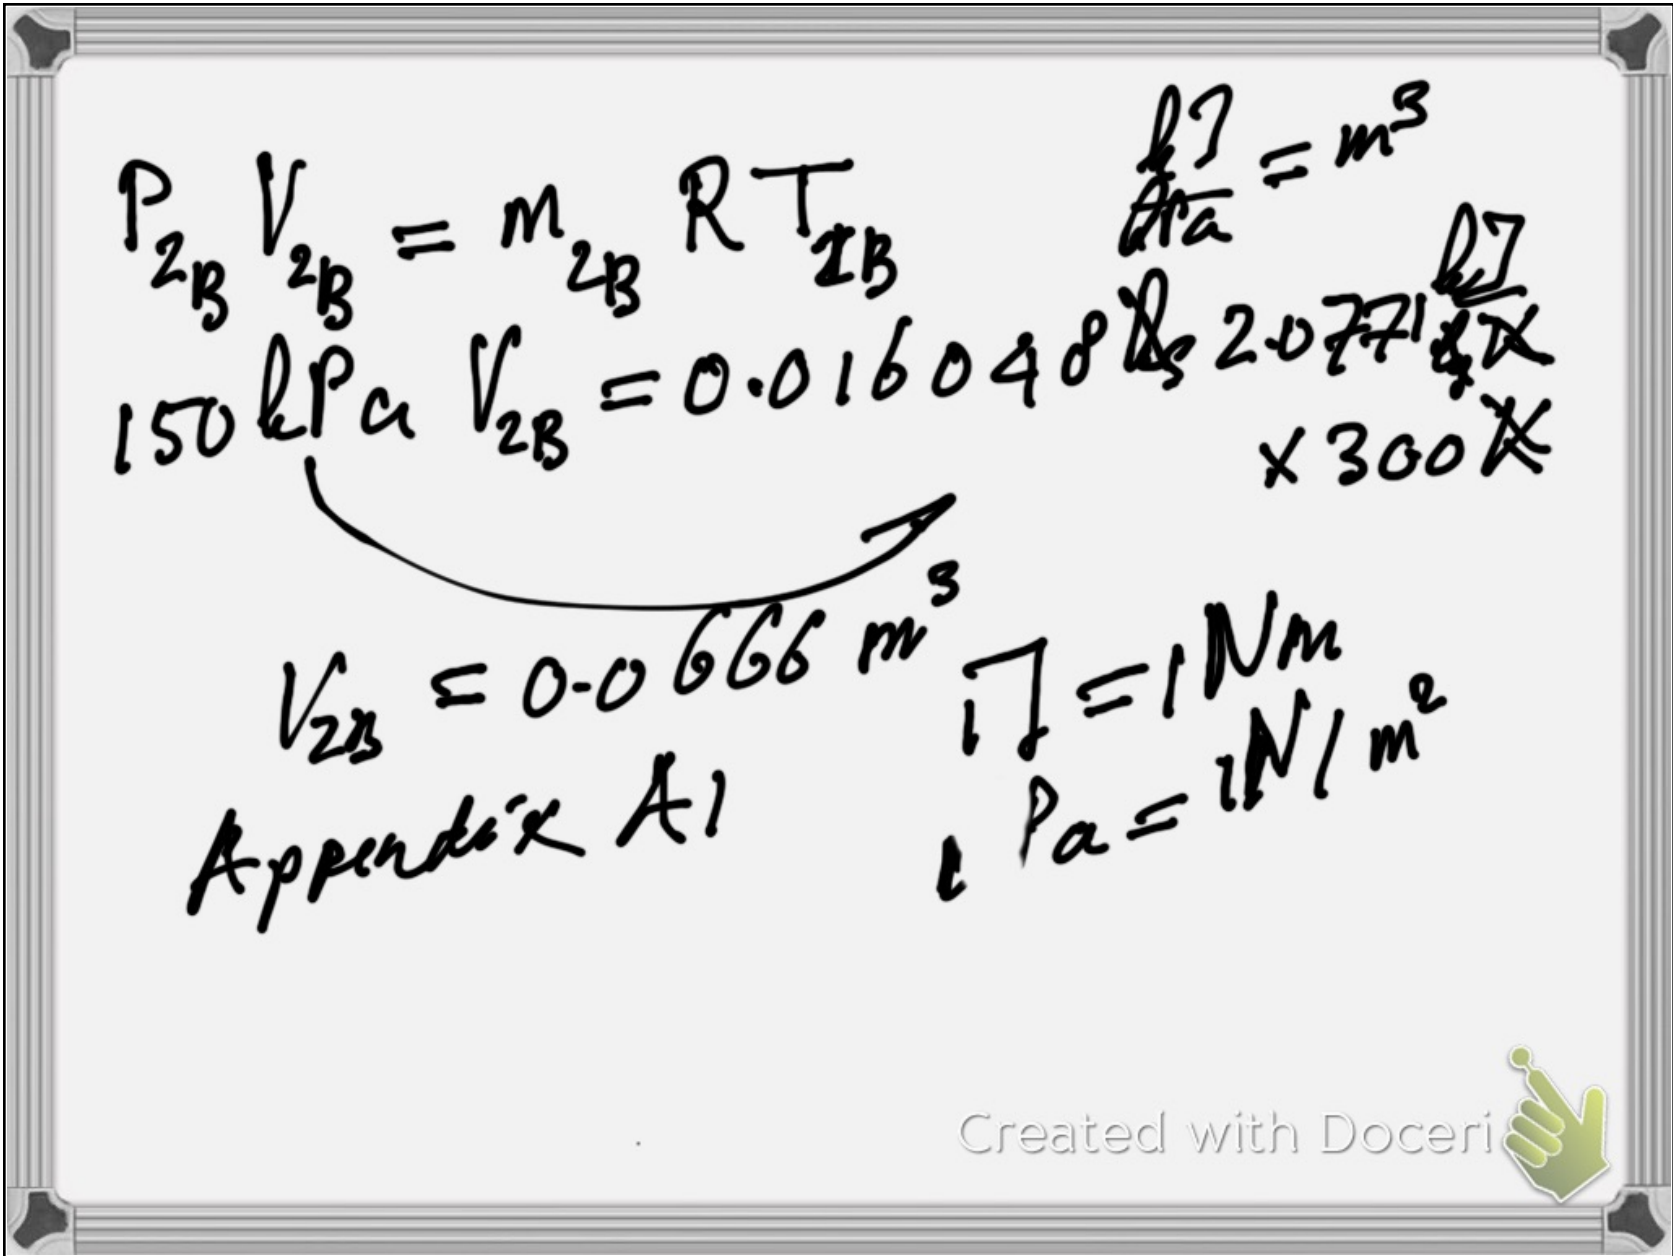 P2B V2B = m2B R T2B
kJ/kPa = m³
150 kPa V2B = 0.016048 kg 2.0771 kJ/kg K
× 300 K
V2B = 0.0666 m³
1J = 1 Nm
1 Pa = 1N/m²
Appendix A1
Created with Doceri